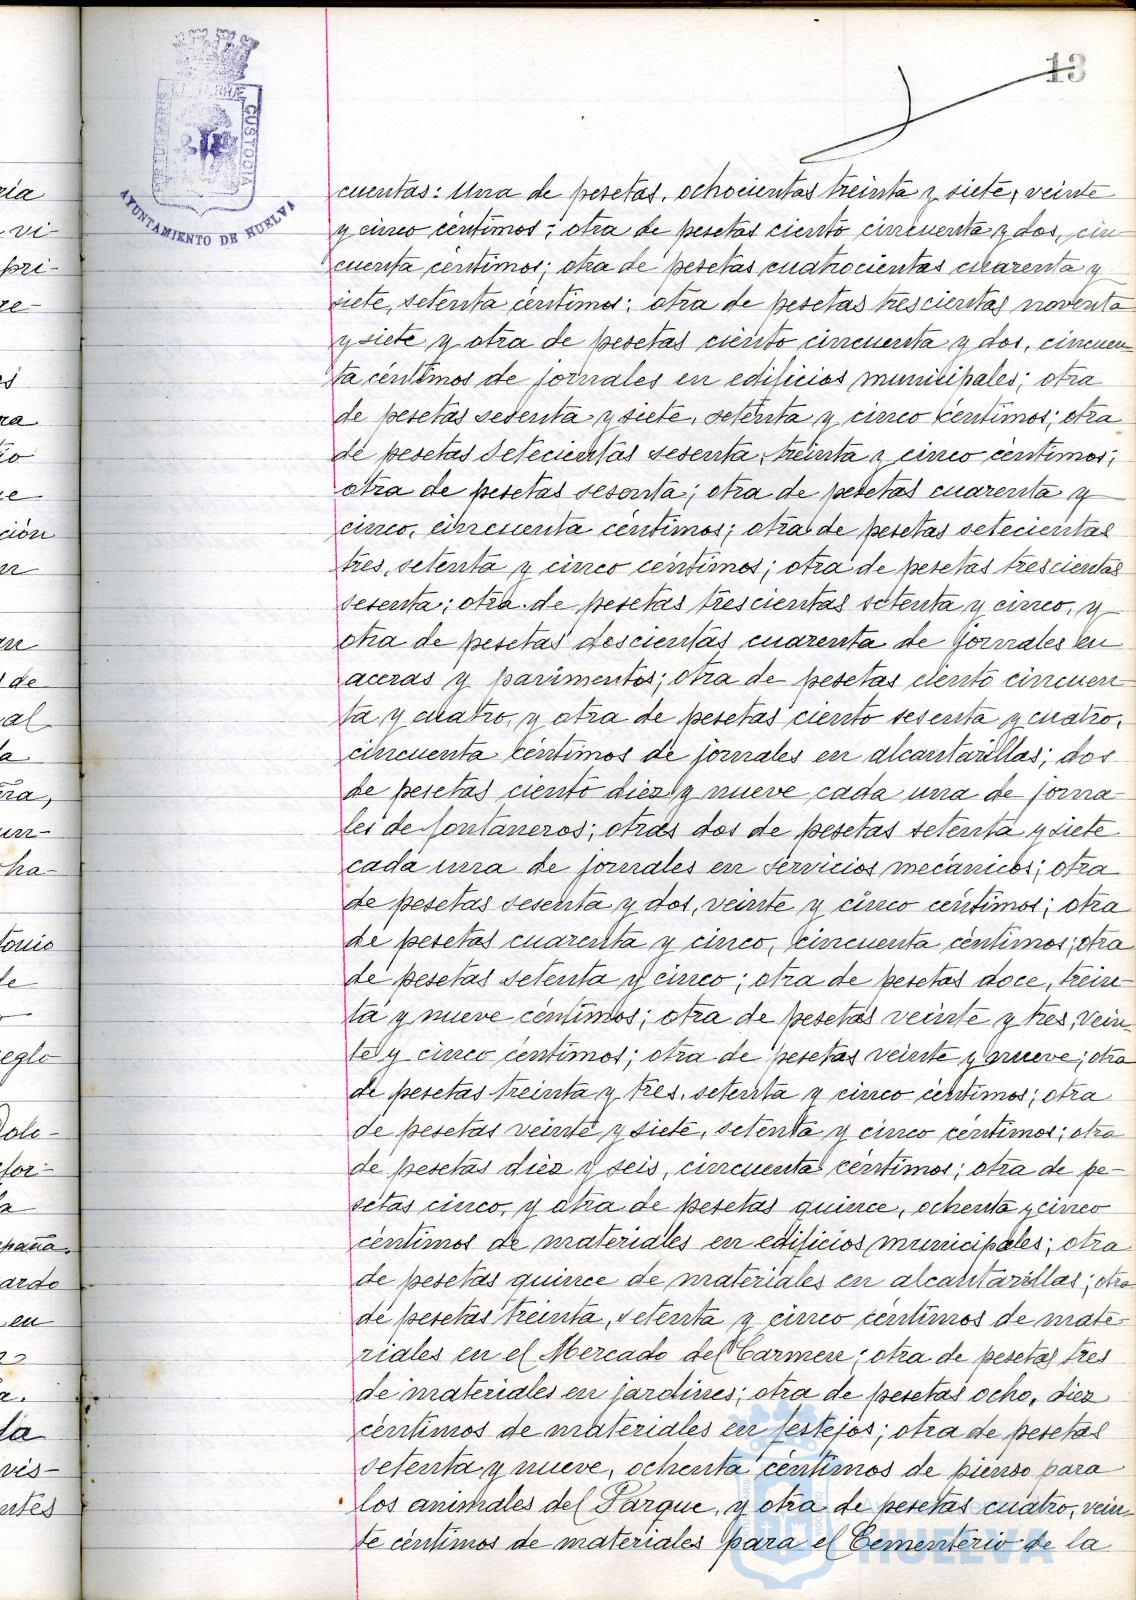 13
PORTUS MARIS ET TERRAE CUSTODIA
AYUNTAMIENTO DE HUELVA
cuentas: Una de pesetas, ochocientas treinta y siete, veinte
y cinco céntimos; otra de pesetas ciento cincuenta y dos, cin
cuenta céntimos; otra de pesetas cuatrocientas cuarenta y
siete, setenta céntimos; otra de pesetas trescientas noventa
y siete y otra de pesetas ciento cincuenta y dos, cincuen-
ta céntimos de jornales en edificios municipales; otra
de pesetas sesenta y siete, setenta y cinco céntimos; otra
de pesetas setecientas sesenta, treinta y cinco céntimos;
otra de pesetas sesenta; otra de pesetas cuarenta y
cinco, cincuenta céntimos; otra de pesetas setecientas
tres, setenta y cinco céntimos; otra de pesetas trescientas
sesenta; otra de pesetas trescientas setenta y cinco, y
otra de pesetas doscientas cuarenta de jornales en
aceras y pavimentos; otra de pesetas ciento cincuen-
ta y cuatro, y otra de pesetas ciento sesenta y cuatro,
cincuenta céntimos de jornales en alcantarillas; dos
de pesetas ciento diez y nueve cada una de jorna-
les de fontaneros; otras dos de pesetas setenta y siete
cada una de jornales en servicios mecánicos; otra
de pesetas sesenta y dos, veinte y cinco céntimos; otra
de pesetas cuarenta y cinco, cincuenta céntimos; otra
de pesetas setenta y cinco; otra de pesetas doce, trein-
ta y nueve céntimos; otra de pesetas veinte y tres, vein-
te y cinco céntimos; otra de pesetas veinte y nueve; otra
de pesetas treinta y tres, setenta y cinco céntimos; otra
de pesetas veinte y siete, setenta y cinco céntimos; otra
de pesetas diez y seis, cincuenta céntimos; otra de pe-
setas cinco, y otra de pesetas quince, ochenta y cinco
céntimos de materiales en edificios municipales; otra
de pesetas quince de materiales en alcantarillas; otra
de pesetas treinta, setenta y cinco céntimos de mate-
riales en el Mercado del Carmen; otra de pesetas tres
de materiales en jardines; otra de pesetas ocho, diez
céntimos de materiales en festejos; otra de pesetas
setenta y nueve, ochenta céntimos de pienso para
los animales del Parque, y otra de pesetas cuatro, vein-
te céntimos de materiales para el Cementerio de la
HUELVA